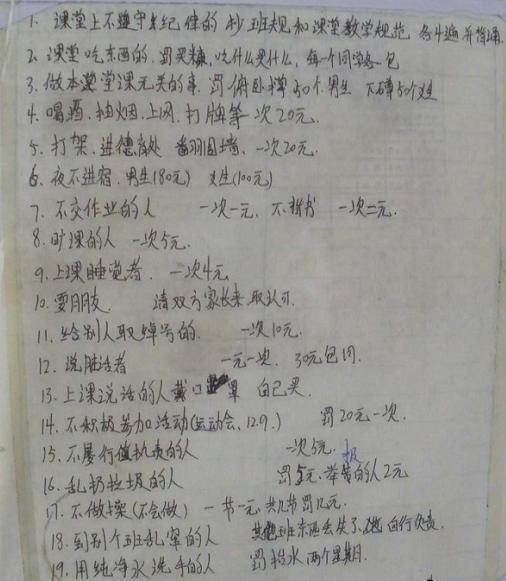 1. 课堂上不遵守纪律的 抄班规和课堂教学规范 各4遍并背诵
2. 课堂吃东西的.罚买糖,吃什么买什么,每个同学各一包
3. 做本堂课无关的事.罚俯卧撑50个男生 下蹲50个女生
4. 喝酒.抽烟.上网.打牌等一次20元.
5. 打架.进德育处 翻围墙.一次20元.
6. 夜不进宿.男生(80元) 女生(100元)
7. 不交作业的人 一次一元.不 一次二元.
8. 旷课的人 一次5元.
9. 上课睡觉者. 一次4元
10. 耍朋友. 请双方家长来取认可.
11. 给别人取绰号的. 一次10元.
12. 说脏话者 一元一次. 30元包月.
13. 上课说话的人戴口罩 自己买.
14. 不积极参加活动(运动会、12.9.) 罚20元一次.
15. 不履行值执责的人 一次5元.
16. 乱扔垃圾的人 罚5元.举报的人2元
17. 不做操(不会做) 一节一元.共几节罚几元.
18. 到别个班乱窜的人 其他班东西丢失了.他自行负责.
19. 用纯净水洗手的人 罚抬水两个星期.